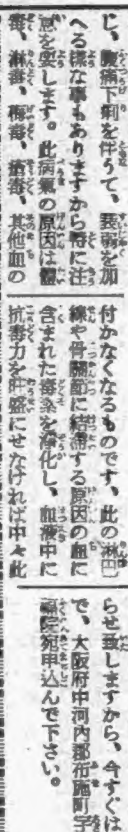 じ、腹痛下痢を伴うて、衰弱を加
へる樣な事もありますから特に注
意を要します。此病氣の原因は體
毒、淋毒、梅毒、瘡毒、其他血の
付かなくなるものです、此の淋巴
線や骨關節に結滯する原因の血に
含まれた毒素を淨化し、血液中に
抗毒力を旺盛にせなければ中々此
らせ致しますから、今すぐは
で、大阪府中河內郡布施町字
福院宛申込んで下さい。